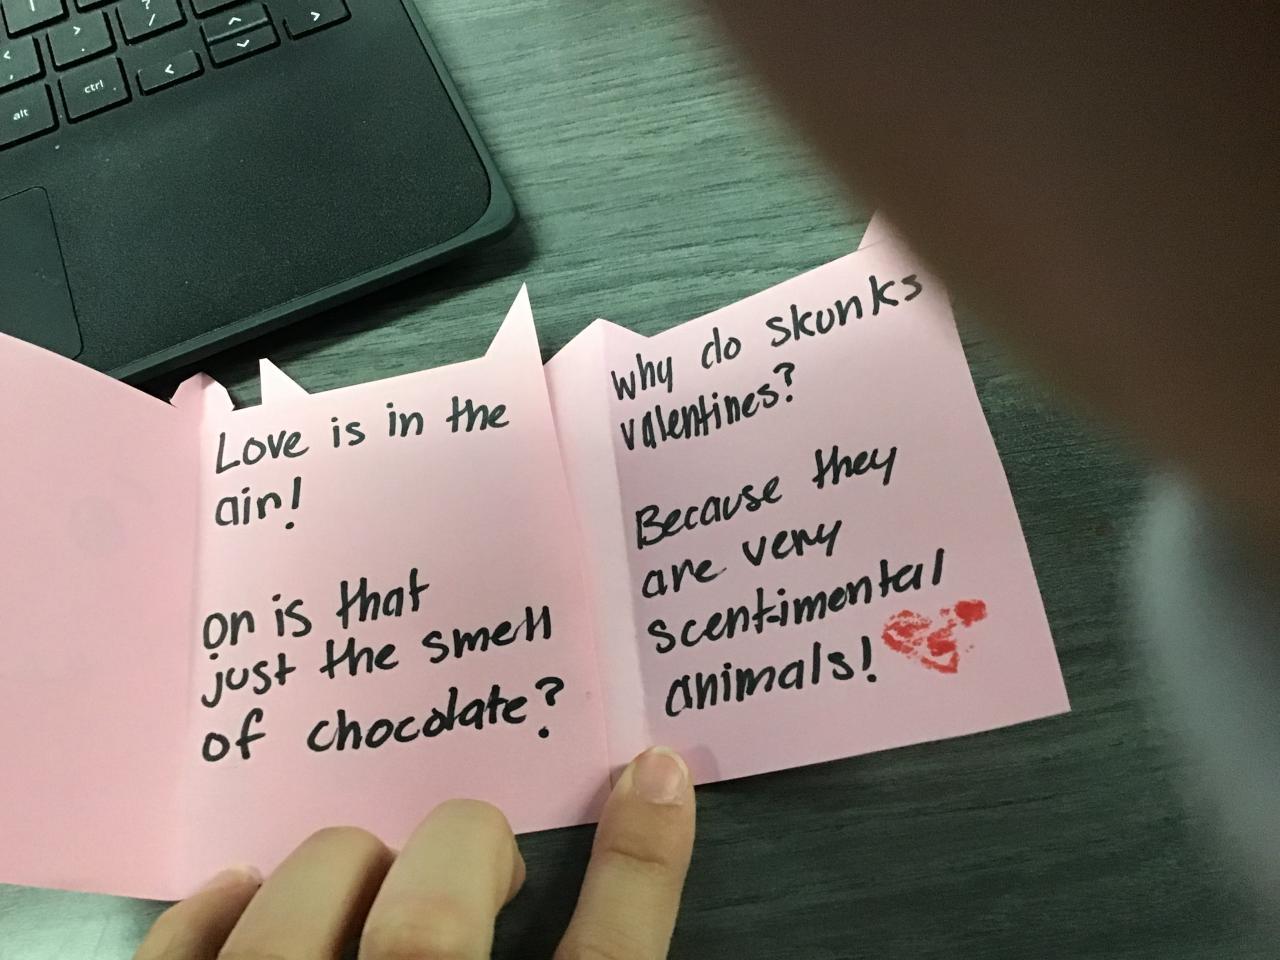 alt
ctrl
Love is in the
air!
or is that
just the smell
of chocolate?
Why do skunks
valentines?
Because they
are very
scent-imental
animals!